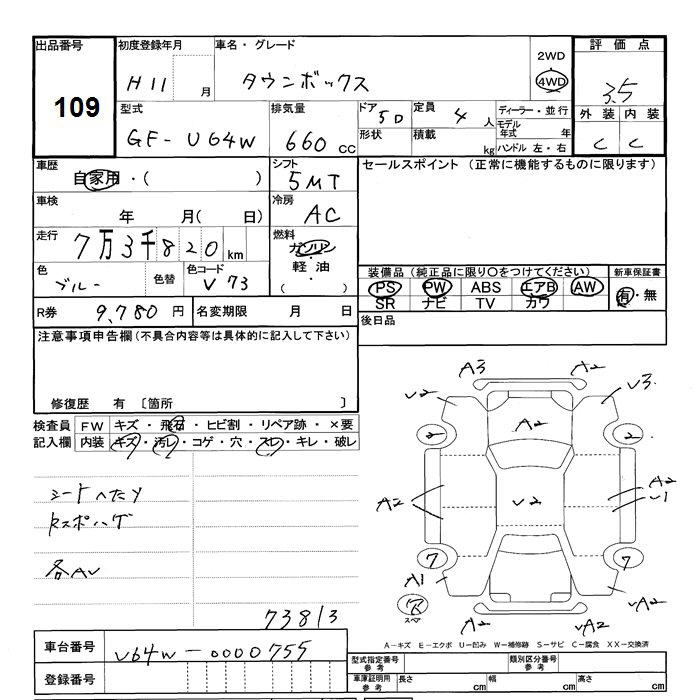 出品番号 109
初度登録年月 H11 月
車名・グレード タウンボックス
2WD 4WD
評価点 3.5
型式 GF-U64W
排気量 660 cc
ドア 5D 形状
定員 4 人 積載 kg
ディーラー・並行
モデル年式 年
ハンドル 左・右
外装 C 内装 C
車歴 自家用・( )
シフト 5MT
セールスポイント (正常に機能するものに限ります)
車検 年 月( 日)
冷房 AC
走行 7万3千820km
燃料 ガソリン 軽油 ( ・ )
色 ブルー 色替 色コード V73
装備品(純正品に限り〇をつけてください)
新車保証書 有・無
PS PW ABS エアB AW
SR ナビ TV カワ
R券 9,780 円 名変期限 月 日
後日品
注意事項申告欄(不具合内容等は具体的に記入して下さい)
修復歴 有 〔箇所 〕
検査員記入欄
FW キズ・飛石・ヒビ割・リペア跡・×要
内装 キズ・汚レ・コゲ・穴・スレ・キレ・破レ
シートヘタリ
各AU
73813
A3 A2
V2 V3
A2
2 2
A2 V2 A2 V1
7 7
A1 VA2
スペア
A2 VA2
A-キズ E-エクボ U-凹み W-補修跡 S-サビ C-腐食 XX-交換済
車台番号 U64W-0000755
登録番号
型式指定番号 参考 類別区分番号 参考
車庫証明用 参考 長さ cm 幅 cm 高さ cm